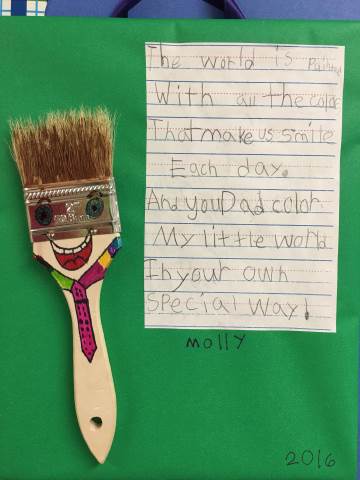 The world is Painted
With all the colors
That make us smile
Each day.
And you Dad color
My little world
In your own
Special way!
molly
2016
2"